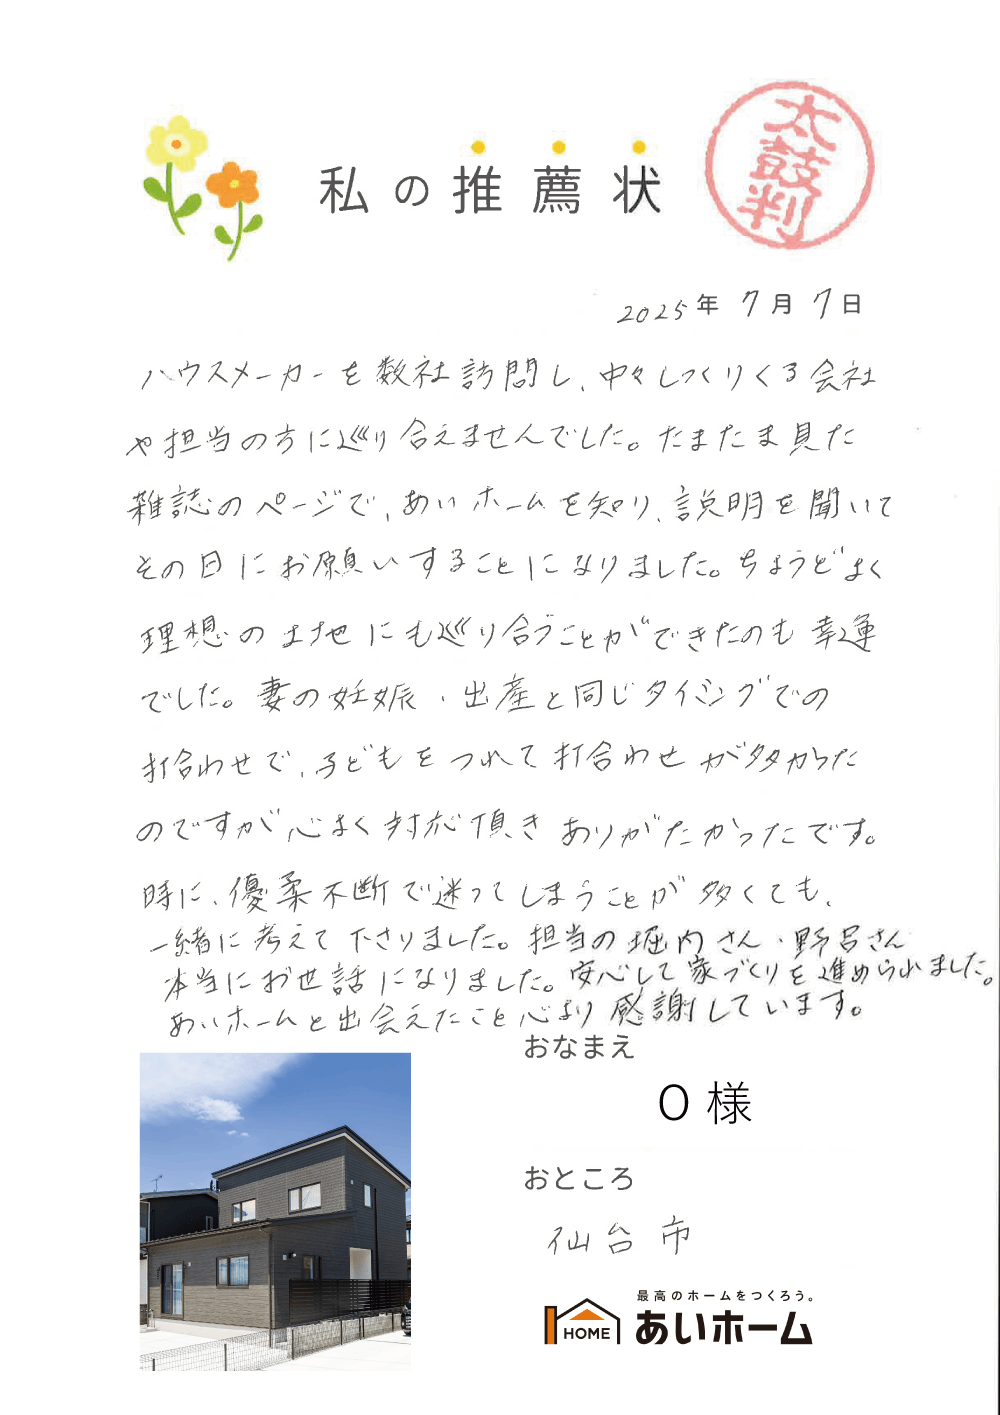 私の推薦状
太鼓判
2025年 7月 7日
ハウスメーカーを数社訪問し、中々しっくりくる会社
や担当の方に巡り合えませんでした。たまたま見た
雑誌のページで、あいホームを知り、説明を聞いて
その日にお願いすることになりました。ちょうどよく
理想の土地にも巡り合うことができたのも幸運
でした。妻の妊娠・出産と同じタイミングでの
打合わせで、子どもをつれて打合わせが多かった
のですが心よく対応頂きありがたかったです。
時に、優柔不断で迷ってしまうことが多くても、
一緒に考えて下さりました。担当の堀内さん・野呂さん
本当にお世話になりました。安心して家づくりを進められました。
あいホームと出会えたこと心より感謝しています。
おなまえ
O 様
おところ
仙台市
最高のホームをつくろう。
HOME あいホーム